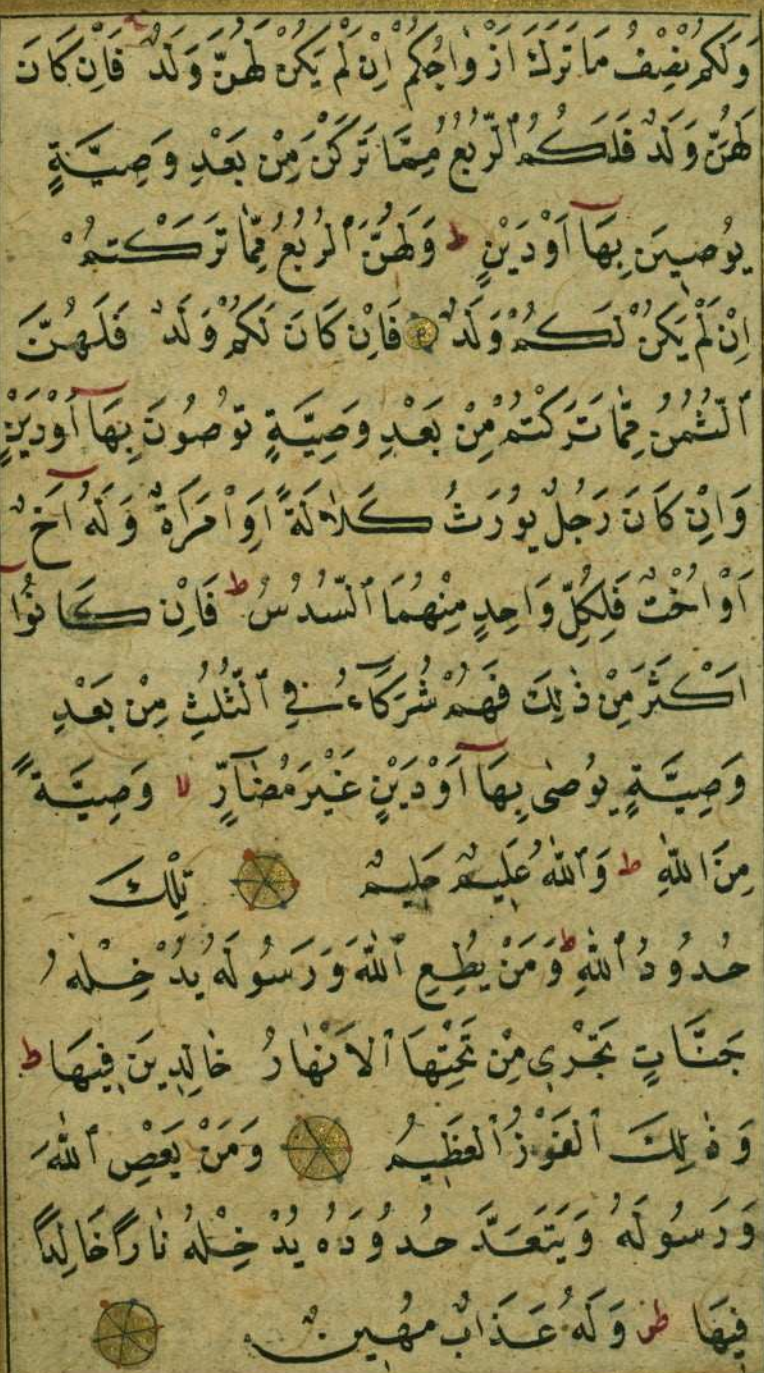 وَلَكُمْ نِصْفُ مَا تَرَكَ اَزْوَاجُكُمْ اِنْ لَمْ يَكُنْ لَهُنَّ وَلَدٌ فَاِنْ كَانَ
لَهُنَّ وَلَدٌ فَلَكُمُ ٱلرُّبُعُ مِمَّا تَرَكْنَ مِنْ بَعْدِ وَصِيَّةٍ
يُوصِينَ بِهَآ اَوْ دَيْنٍ ط وَلَهُنَّ ٱلرُّبُعُ مِمَّا تَرَكْتُمْ
اِنْ لَمْ يَكُنْ لَكُمْ وَلَدٌ فَاِنْ كَانَ لَكُمْ وَلَدٌ فَلَهُنَّ
ٱلثُّمُنُ مِمَّا تَرَكْتُمْ مِنْ بَعْدِ وَصِيَّةٍ تُوصُونَ بِهَآ اَوْ دَيْنٍ
وَاِنْ كَانَ رَجُلٌ يُورَثُ كَلَالَةً اَوِ امْرَاَةٌ وَلَهُٓ اَخٌ
اَوْ اُخْتٌ فَلِكُلِّ وَاحِدٍ مِنْهُمَا ٱلسُّدُسُ ط فَاِنْ كَانُوٓا
اَكْثَرَ مِنْ ذٰلِكَ فَهُمْ شُرَكَآءُ فِي ٱلثُّلُثِ مِنْ بَعْدِ
وَصِيَّةٍ يُوصٰى بِهَآ اَوْ دَيْنٍ غَيْرَ مُضَآرٍّ لا وَصِيَّةً
مِنَ اللّٰهِ ط وَٱللّٰهُ عَلِيمٌ حَلِيمٌ تِلْكَ
حُدُودُ ٱللّٰهِ ط وَمَنْ يُطِعِ ٱللّٰهَ وَرَسُولَهُ يُدْخِلْهُ
جَنَّاتٍ تَجْرِي مِنْ تَحْتِهَا ٱلاَنْهَارُ خَالِدِينَ فِيهَا ط
وَذٰلِكَ ٱلفَوْزُ ٱلعَظِيمُ وَمَنْ يَعْصِ ٱللّٰهَ
وَرَسُولَهُ وَيَتَعَدَّ حُدُودَهُ يُدْخِلْهُ نَارًا خَالِدًا
فِيهَا ط وَلَهُ عَذَابٌ مُهِينٌ